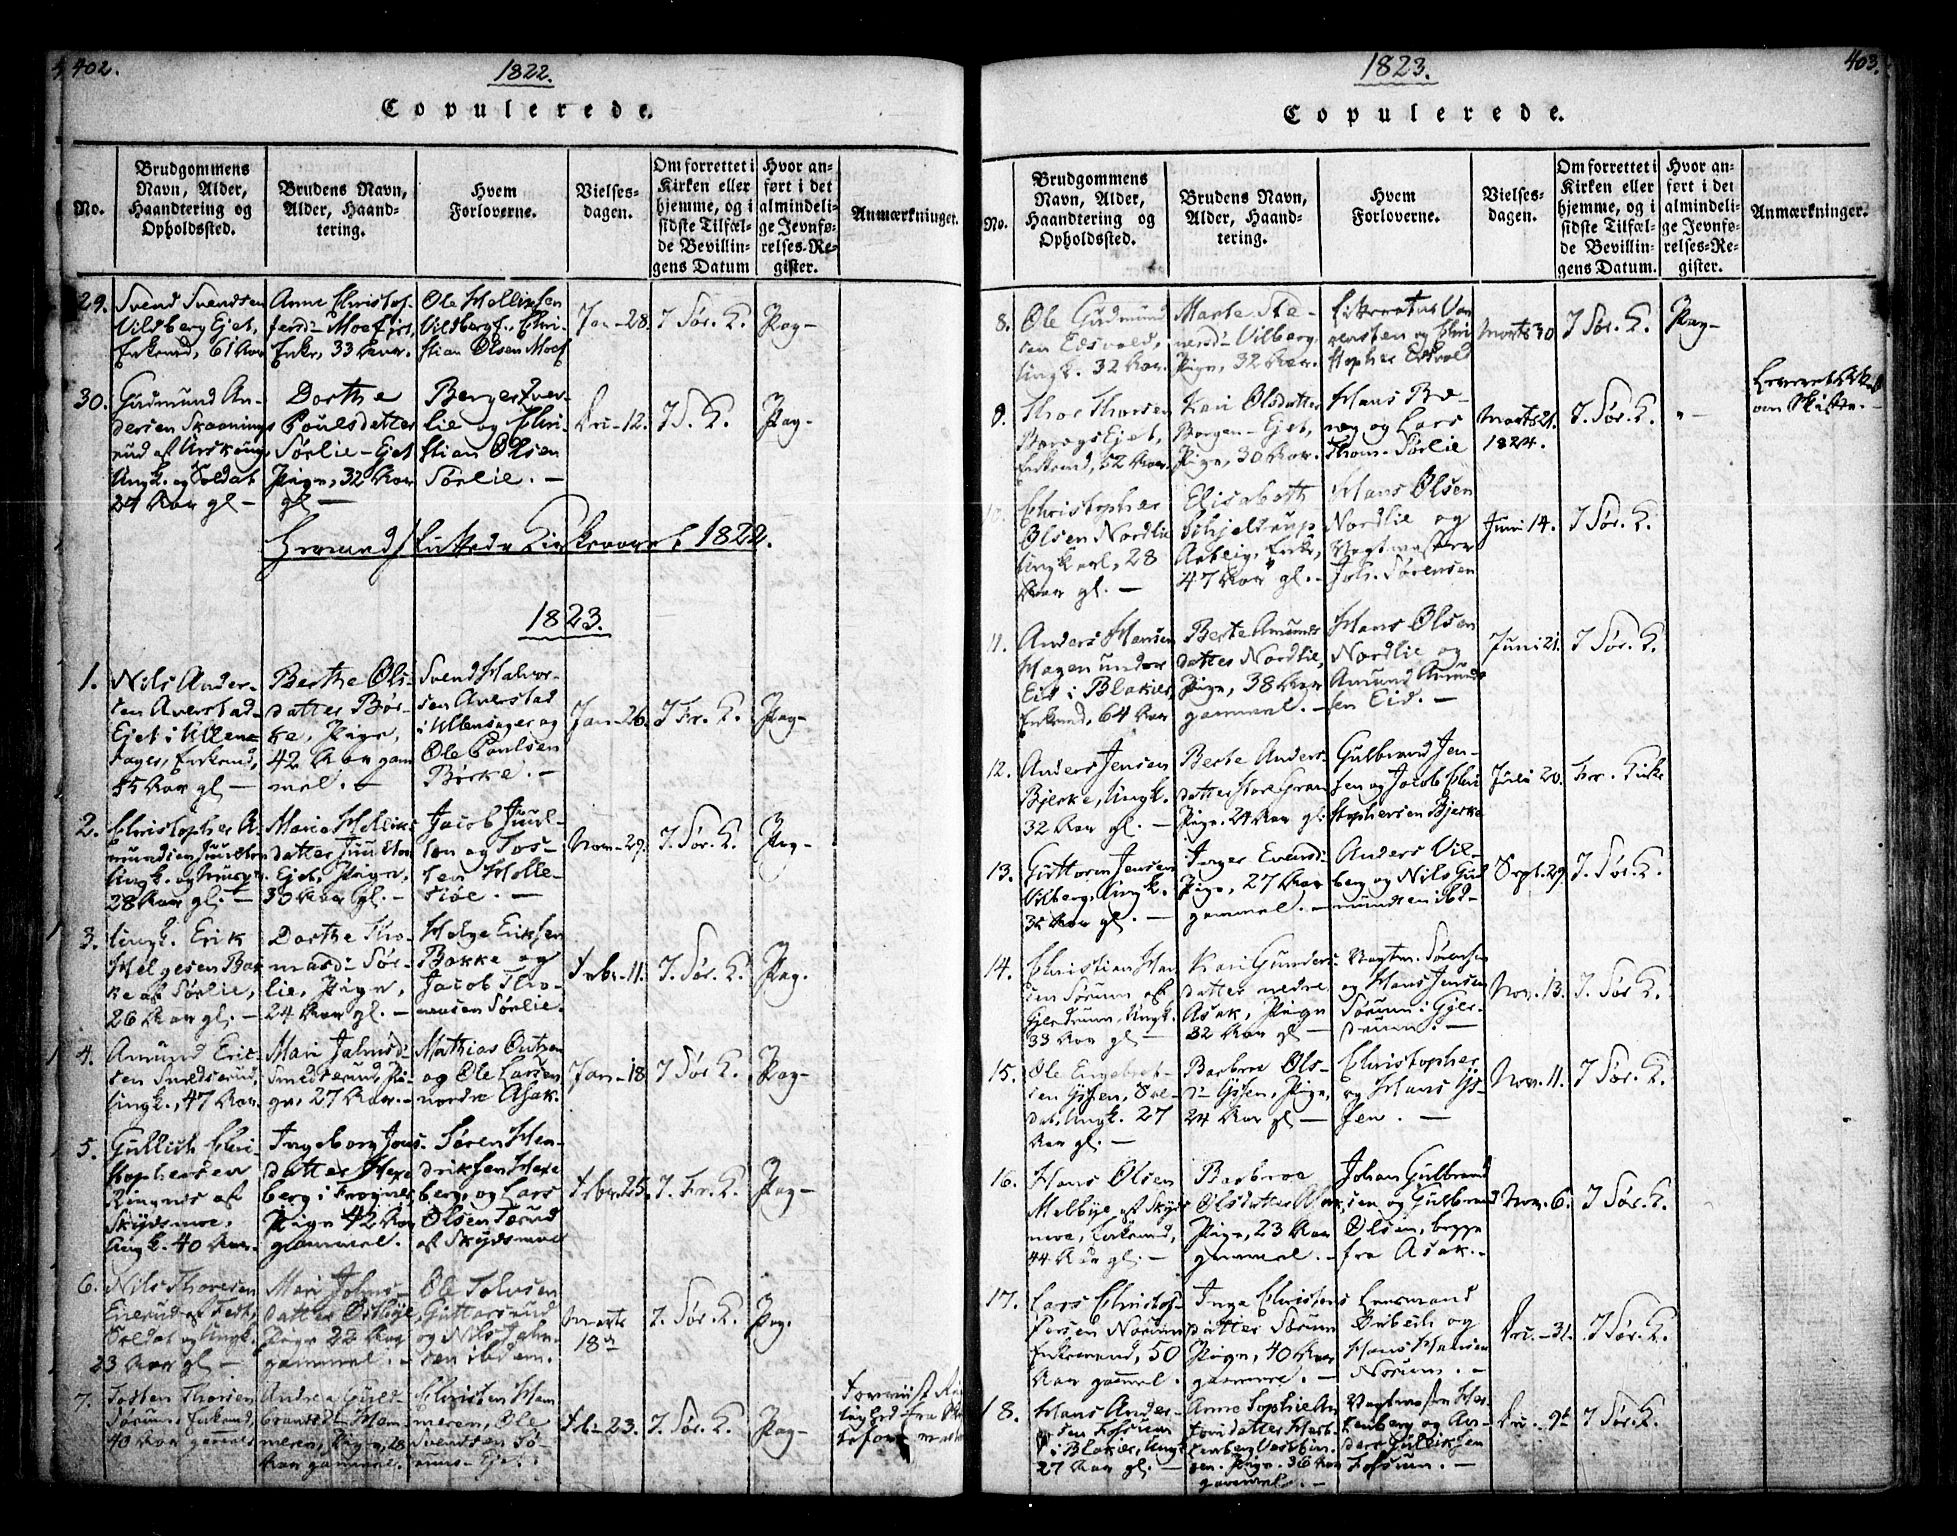 402.
1822.
Copulerede.
No.
Brudgommens
Navn, Alder,
Haandtering og
Opholdssted.
Brudens Navn,
Alder, Haand-
tering.
Hvem
Forloverne.
Vielses-
dagen.
Om forrettet i
Kirken eller
hjemme, og i
sidste Tilfæl-
de Bevillin-
gens Datum
Hvor an-
ført i det
almindeli-
ge Jevnfø-
relses-Re-
gister.
Anmærkninger.
29.
Svend Svendsen
Vilsberg Ejet,
Enkemd, 61 Aar
Anne Christof-
Enke, 33 Aar.
Christian Olsen Moe
Jan-28.
I Sør. K.
Pag-
30.
Gudmund An-
dersen Skaanings-
rud af Urskoug
Ungk. og Soldat
27 Aar gl -
Dorthe
Poulsdatter
Sørlie-Ejet
Pige, 32 Aar
gl -
Berger Tver-
lie og Chri-
stian Olsen
Sørlie. -
12.
I S. K.
Pag-
1822.
1823.
1.
Nils Ander-
sen Averstad-
Ejet i Ullen-
sager, Enkemd,
45 Aar gl -
Berthe Ols-
datter Bør-
ke, Pige,
42 Aar gam
mel. -
Svend Halvor-
sen Averstad
i Ullensager og
Ole Poulsen
Børke. -
Jan-26.
I Fr. K.
Pag-
2.
Christopher A-
mundsen Juulton
28 Aar gl. -
Marie
datter Juulton
Ejet, Pige,
30 Aar gl. -
Jacob Juul-
ton og Tos-
ten Holle-
siøe. -
29.
I. Sør. K.
Pag-
3.
Ungk. Erik
Helgesen Bak
ke af Sørlie,
26 Aar gl. -
Dorthe Tho-
masd- Sør-
lie, Pige,
24 Aar gl. -
Helge Eriksen
Bakke og
Jacob Tho-
masen Sørlie.
Febr-11.
I. Sør. K.
Pag.
4.
Amund Eric-
sen Smedserud,
Ungk., 47 Aar.
Mari
Smedserud, Pi-
ge, 27 Aar. -
Mathias
og Ole Larsen
nordre Asak.
Jan-18
I Sør. K.
Pag-
5.
Gullich Chri-
stophersen
Ringnes af
Skydsmoe,
Ungk. 40 Aar.
Ingeborg Jons-
datter Hexe
berg i Frogner,
Pige 42 Aar
gammel.
Søren Hen-
driksen Hexe
berg, og Lars
Olsen
af Skydsmoe
Febr-25.
I. Fr. K.
Pag-
6.
Nils Thoresen
Soldat og Ungk.
23 Aar gl -
Mari
datter Østbye,
Pige 22 Aar
gammel. -
Ole Tolvsen
Guttersrud
og Nils
sen ibidem.
Marts
18de
I. Sør. K.
Pag.
7.
Tosten Thorsen
Sørum, Enkemd,
40 Aar gammel
Andrea Guld-
brandsd- Ham
meren, Pige, 28
Aar gammel.
Christen Ham
meren, Ole
Svendsen Sø-
rum-Ejet.
Feb-23.
I. Sør. K.
Pag-
1823.
403.
Copulerede.
No.
Brudgommens
Navn, Alder,
Haandtering og
Opholdssted.
Brudens Navn,
Alder, Haand-
tering.
Hvem
Forloverne.
Vielses-
dagen.
Om forrettet i
Kirken eller
hjemme, og i
sidste Tilfæl-
de Bevillin-
gens Datum.
Hvor an-
ført i det
almindeli-
ge Jevnfø-
relses-Re-
gister.
Anmærkninger.
8.
Ole Gudmund
sen Edsvold,
Ungk. 32 Aar.
Marte Ste-
nersd- Vilberg
Pige, 32 Aar.
og Chri
stopher Edsvold
Marts 30
I Sør. K.
Pag-
9.
Thor Thorsen
Borogs Ejet,
Enkemd, 52 Aar.
Kari Olsdatter
Borgen-Ejet,
Pige, 30 Aar.
Hans Bo-
rog og Lars
Thom. Sørlie
Marts 21.
1824.
I. Sør. K.
"-
om Skifte. -
Christopher
Olsen Nordlie
Ungkarl, 28
Aar gl. -
Elisabeth
Schjeltrup
Enke,
47 Aar gl. -
Hans Olsen
Nordlie og
Vagtmester
Joh. Sørensen
Juni 14.
I Sør. K.
11.
Anders Hansen
Hagen under
Eid i Blakier
Enkemd, 64 Aar
Berte Amunds
datter Nordlie,
Pige, 38 Aar
gammel. -
Hans Olsen
Nordlie og
Amund Amund
sen Eid. -
Juni 21.
I Sør. K.
12.
Anders Jensen
Bjerke, Ungk.
32 Aar gl. -
Berte Anders-
datter Store Gran
Pige. 24 Aar gl.
Gulbrand Jen-
sen og Jacob Chri
stophersen Bjerke
Juli 20.
Fr. Kirke
13.
Guttorm Jensen
Vilberg, Ungk.
Aar gl. -
Inger Evensd-
Pige, 27 Aar
gammel. -
Anders Vil-
berg og Nils Gud
mundsen ibd-
Sept. 29.
I. Sør. K.
14.
Christian Han
sen Sørum af
Gjerdrum, Ungk.
33 Aar gl -
Kari Gunders-
datter nedre
Asak, Pige
32 Aar gl -
Vagtm. Sørensen
og Hans Jensen
Sørum i Gjer-
drum. -
Nov. 13.
I. Sør K.
15.
Ole Engebret-
sen Gissen, Sol-
dat, Ungk. 27
Aar gl. -
Barbroe Ols-
d- Gissen, Pige,
24 Aar gl -
Christopher
og Hans Gis-
sen. -
Nov. 11.
I Sør. K.
16.
Hans Olsen
Melbye af Skyds
moe, Enkemd,
44 Aar gl. -
Barbroe
Olsdatter Asak,
Pige, 23 Aar
gammel. -
Johan Gulbrand
sen og Gulbrand
Olsen, begge
fra Asak. -
Nov. 6.
I Sør. K.
17.
Lars Christof-
fersen Norum
Enkemand, 50
Aar gammel.
Inge Christens
datter Sørum
Pige, 40 Aar
gammel. -
Lensmand
Ribech og
Hans Hansen
Norum. -
31.
I Sør. K.
18.
Hans Ander-
sen Fossum
i Blakier, Ungk
27 Aar gl. -
Anne Sophie An
Pige. 36 Aar
gammel. -
og An-
ders Gulliksen
Fossum. -
9de
I Sør. K.